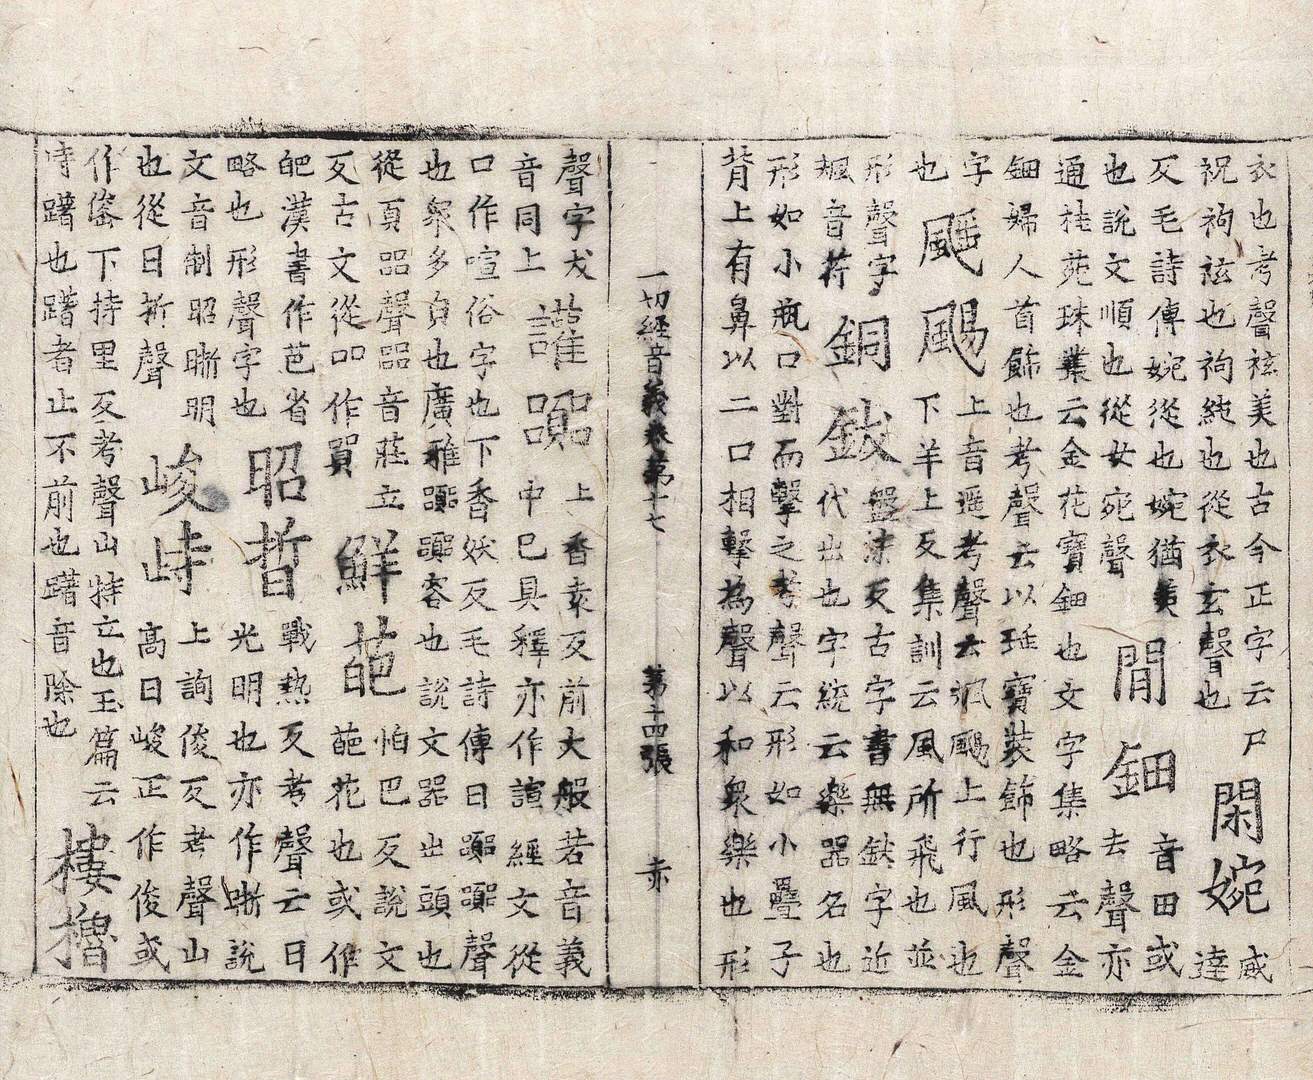 衣也考聲袨美也古今正字云尸
祝袀袨也袀純也從衣玄聲也
閑婉
威
達
反毛詩傳婉從也婉猶美
也說文順也從女宛聲
閒鈿
音田或
去聲亦
通桂苑珠叢云金花寶鈿也文字集略云金
鈿婦人首飾也考聲云以珎寶裝飾也形聲
字
也
颻颺
上音遥考聲云颻颺上行風也
下羊上反集訓云風所飛也並
形聲字
颻音
銅鈸
盤沫反古字書無鈸字近
代出也字統云樂器名也
形如小瓶口對而擊之考聲云形如小疊子
背上有鼻以二口相擊為聲以和衆樂也形
一切經音義卷第十七 第十四張 赤
聲字犮
音同上
讙嚻
上香袁反前大般若音義
中已具釋亦作諠經文從
口作喧俗字也下香妖反毛詩傳曰嚻嚻聲
也衆多皃也廣雅嚻嚻容也說文器出頭也
從頁㗊聲㗊音莊立
反古文從吅作買
鮮葩
怕巴反說文
葩花也或作
皅漢書作芭省
略也形聲字也
昭晢
戰熱反考聲云日
光明也亦作晣說
文音制昭晣明
也從日折聲
峻峙
上詢俊反考聲山
高曰峻正作俊或
作下持里反考聲山特立也玉篇云
峙躇也躇者止不前也躇音除也
樓櫓